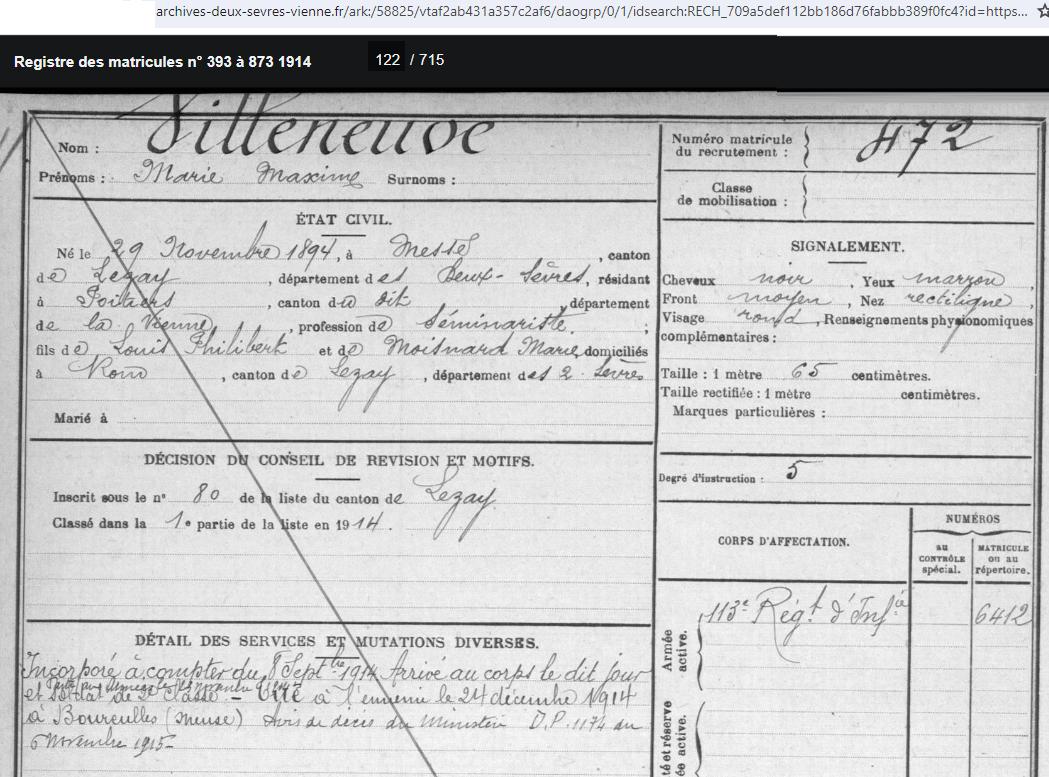 archives-deux-sevres-vienne.fr/ark:/58825/vtaf2ab431a357c2af6/daogrp/0/1/idsearch:RECH_709a5def112bb186d76fabbb389f0fc4?id=https...
Registre des matricules n° 393 à 873 1914 122 / 715
Nom : Villeneuve
Prénoms : Marie Maxime Surnoms :
ÉTAT CIVIL.
Né le 29 Novembre 1894, à Messé, canton
de Lezay, département des Deux-Sèvres, résidant
à Poitiers, canton du dit, département
de la Vienne, profession de Séminariste,
fils de Louis Philibert et de Moisnard Marie, domiciliés
à Rom, canton de Lezay, département des 2 Sèvres
Marié à
DÉCISION DU CONSEIL DE REVISION ET MOTIFS.
Inscrit sous le n° 80 de la liste du canton de Lezay
Classé dans la 1e partie de la liste en 1914.
DÉTAIL DES SERVICES ET MUTATIONS DIVERSES.
Incorporé à compter du 8 Septbre 1914 Arrivé au corps le dit jour
et soldat de 2e classe. – Tué à l'ennemi le 24 décembre 1914
à Boureuilles (Meuse) Avis de décès du Ministère D.P. 1174 du
6 Novembre 1915-
Numéro matricule
du recrutement : 472
Classe
de mobilisation :
SIGNALEMENT.
Cheveux noir, Yeux marron,
Front moyen, Nez rectiligne,
Visage rond, Renseignements physionomiques
complémentaires :
Taille : 1 mètre 65 centimètres.
Taille rectifiée : 1 mètre centimètres.
Marques particulières :
Degré d'instruction : 5
CORPS D'AFFECTATION.
NUMÉROS
au
CONTRÔLE
spécial.
MATRICULE
ou au
répertoire.
Armée
active.
113e Régt d'Infie 6412
té et réserve
ée active.